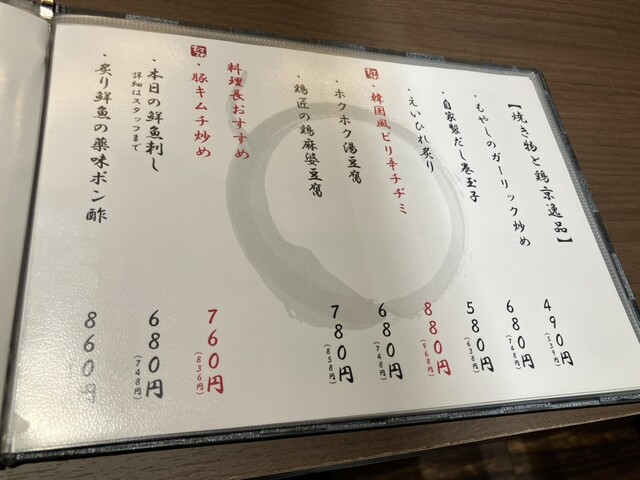 【焼き物と鶏京逸品】
・もやしのガーリック炒め 490円(539円)
・自家製だし巻玉子 680円(748円)
・えいひれ炙り 580円(638円)
・韓国風ピリ辛チヂミ 880円(968円)
・ホクホク湯豆腐 680円(748円)
・鶏匠の鶏麻婆豆腐 780円(858円)
料理長おすすめ
・豚キムチ炒め 760円(836円)
・本日の鮮魚刺し 680円(748円)
詳細はスタッフまで
・炙り鮮魚の薬味ポン酢 860円